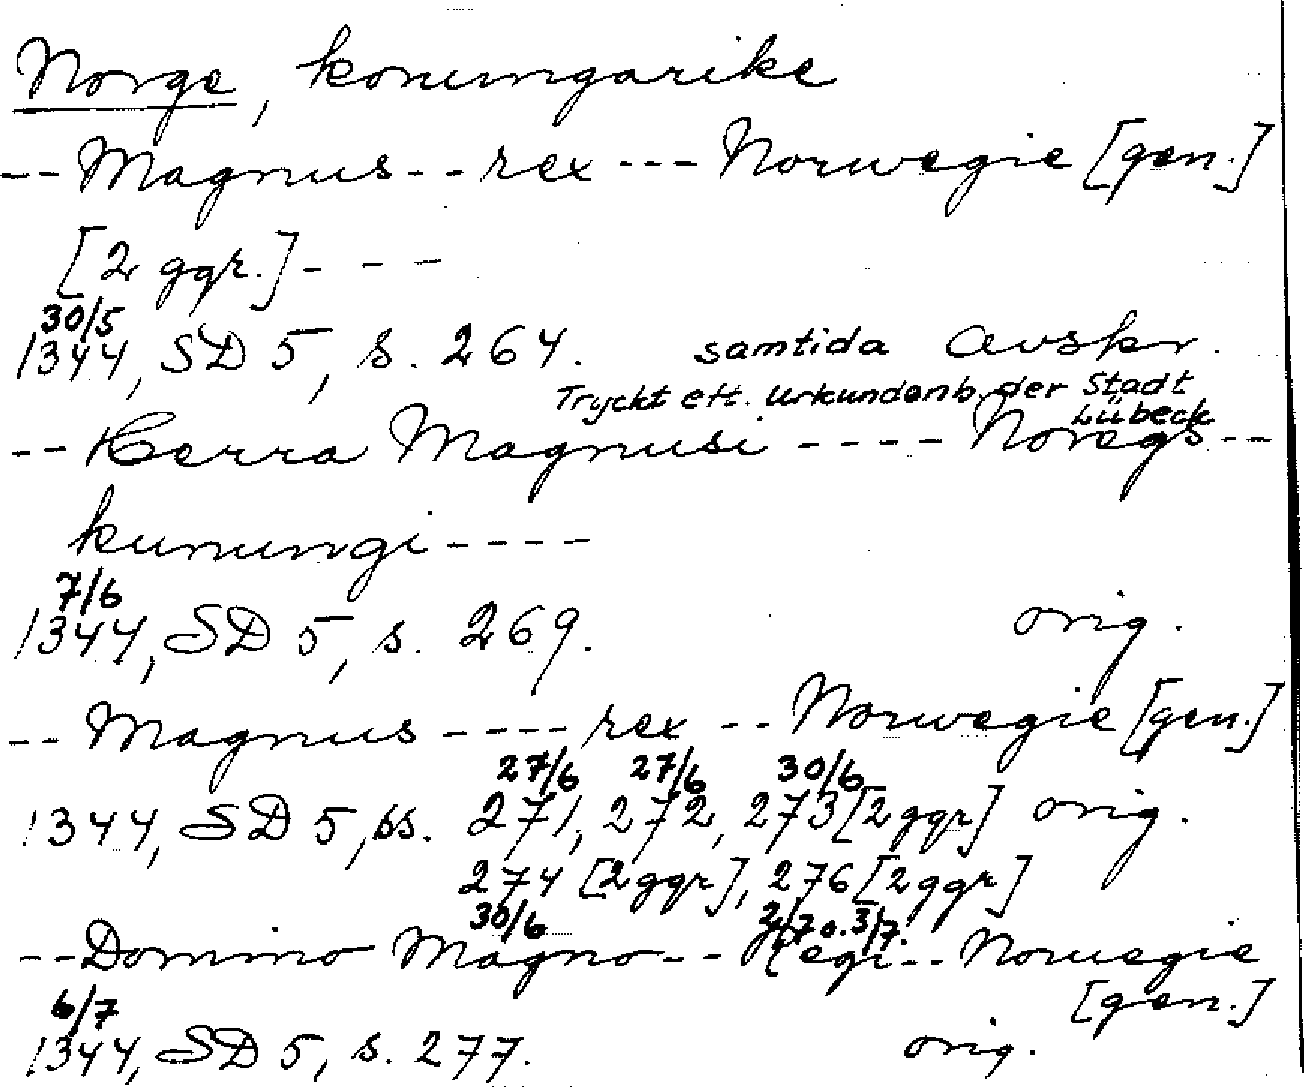 Norge, konungarike
-- Magnus -- rex --- Norwegie [gen.]
[2 ggr.] - - -
30/5
1344, SD 5, s. 264. samtida avskr.
Tryckt eft. Urkundenb. der Stadt
Lübeck
-- Herra Magnusi ---- Noregs --
kunungi ----
7/6
1344, SD 5, s. 269. orig.
-- Magnus ---- rex -- Norwegie [gen.]
27/6 27/6 30/6
1344, SD 5, ss. 271, 272, 273 [2 ggr] orig.
274 [2 ggr], 276 [2 ggr]
30/6 2/7 o. 3/7.
-- Domino Magno -- Regi -- Noruegie
[gen.]
6/7
1344, SD 5, s. 277. orig.